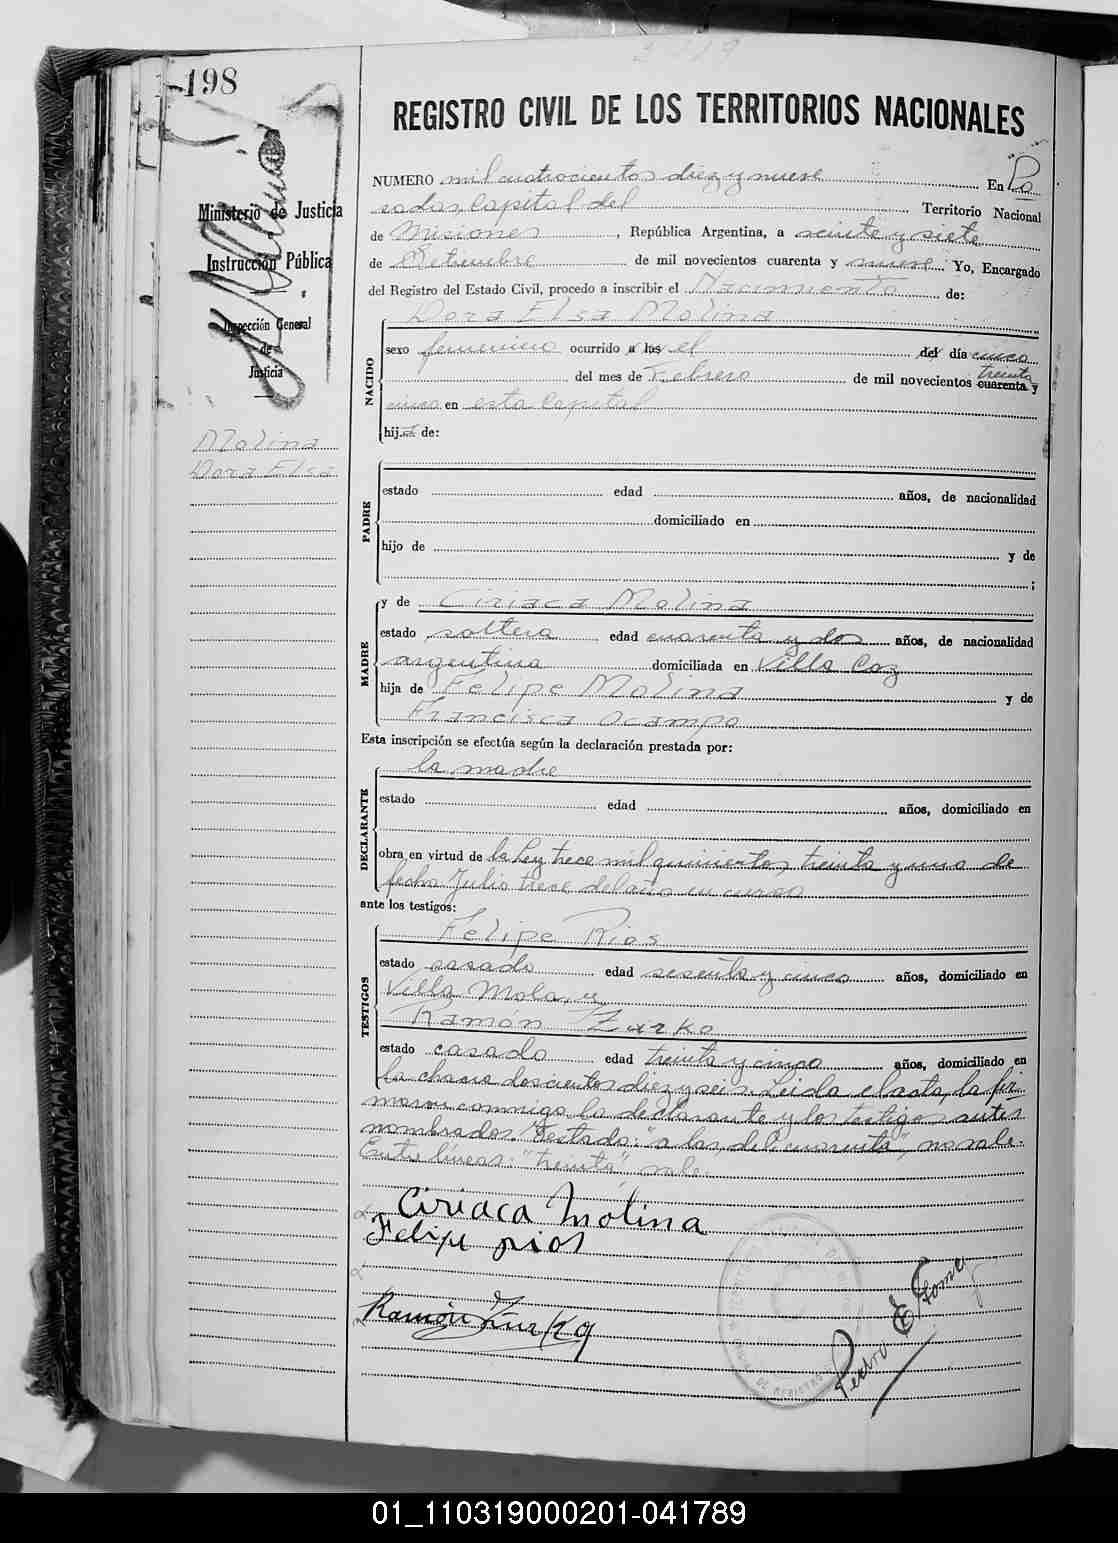 198
REGISTRO CIVIL DE LOS TERRITORIOS NACIONALES
NUMERO mil cuatrocientos diez y nueve En Po
sadas, Capital del Territorio Nacional
de Misiones, República Argentina, a veinte y siete
de Setiembre de mil novecientos cuarenta y nueve Yo, Encargado
del Registro del Estado Civil, procedo a inscribir el Nacimiento de:
Ministerio de Justicia
Instrucción Pública
Inspección General
de
Justicia
Molina
Dora Elsa
NACIDO
Dora Elsa Molina
sexo femenino ocurrido a las el del día cinco
del mes de Febrero de mil novecientos cuarenta treinta y
cinco en esta Capital
hija de:
PADRE
estado edad años, de nacionalidad
domiciliado en
hijo de y de
;
MADRE
y de Ciriaca Molina
estado soltera edad cuarenta y dos años, de nacionalidad
argentina domiciliada en Villa Coz
hija de Felipe Molina y de
Francisca Ocampo
Esta inscripción se efectúa según la declaración prestada por:
DECLARANTE
la madre
estado edad años, domiciliado en
obra en virtud de la Ley trece mil quinientos treinta y uno de
fecha Julio trece del año en curso
ante los testigos:
TESTIGOS
Felipe Rios
estado casado edad sesenta y cinco años, domiciliado en
Villa Mola, y
Ramón Zurko
estado casado edad treinta y cinco años, domiciliado en
la chacra doscientos diez y seis. Leida el acta, la fir
maron conmigo la declarante y los testigos antes
nombrados. Testado: "a las, del, cuarenta", no vale.
Entre lineas: "treinta" vale.
Ciriaca Molina
Felipe rios
Ramón Zurko
Pedro E Gomez
01_110319000201-041789